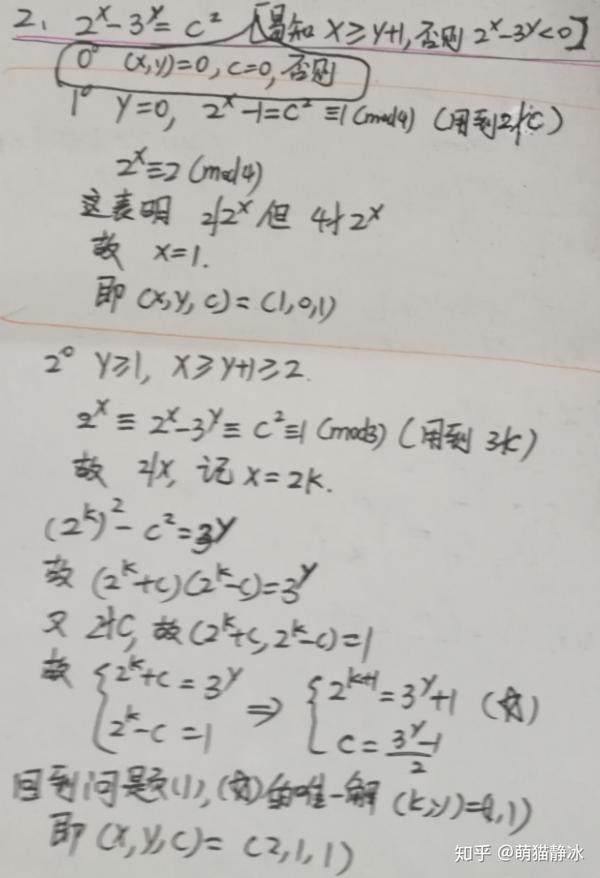 2. 2^x-3^y=c^2 [易知 x≥y+1, 否则 2^x-3^y<0]
0° (x,y)=0, c=0, 否则
1° y=0, 2^x-1=c^2≡1(mod4) (用到2∤c)
2^x≡2(mod4)
这表明 2|2^x 但 4∤2^x
故 x=1.
即 (x,y,c)=(1,0,1)
2° y≥1, x≥y+1≥2.
2^x≡2^x-3^y≡c^2≡1(mod3) (用到 3∤c)
故 2|x, 记 x=2k.
(2^k)^2-c^2=3^y
故 (2^k+c)(2^k-c)=3^y
又 2∤c, 故(2^k+c, 2^k-c)=1
故 {2^k+c=3^y ⇒ {2^{k+1}=3^y+1 (☆)
2^k-c=1 c=\frac{3^y-1}{2}
回到问题(1), (☆)的唯一解 (k,y)=(1,1)
即 (x,y,c)=(2,1,1)
知乎 @萌猫静冰